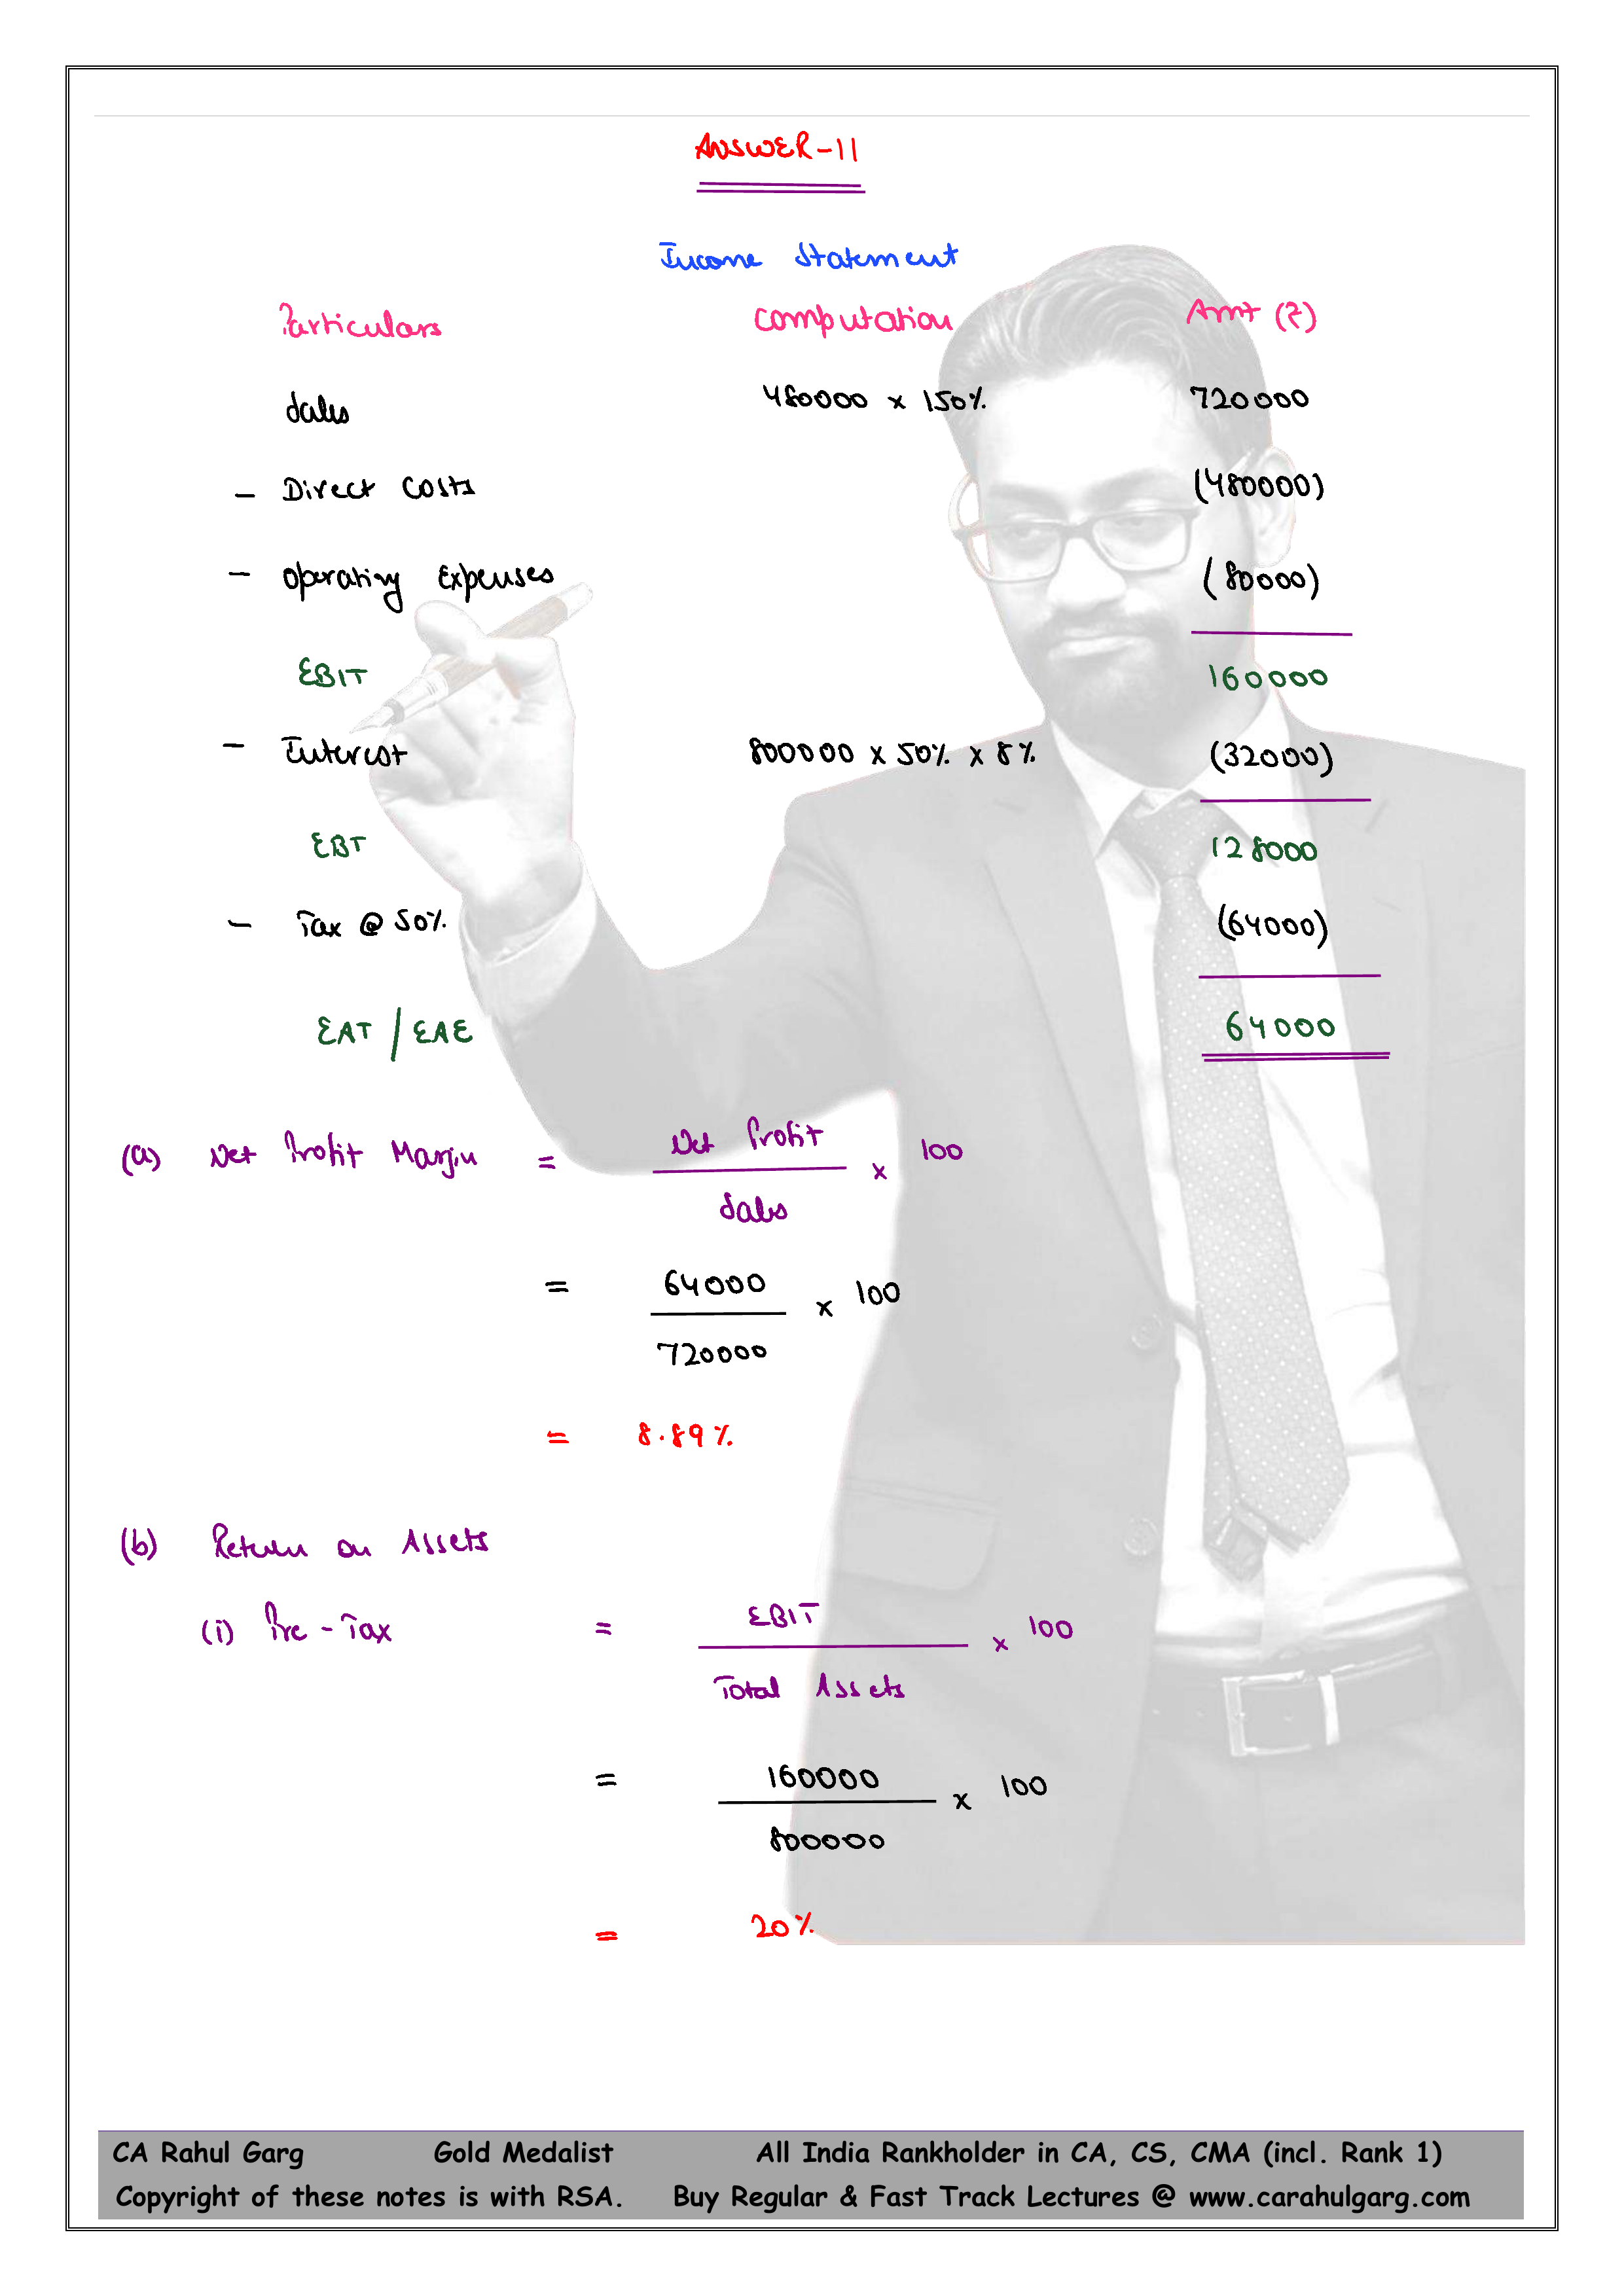 ANSWER-11
Income Statement
Particulars Computation Amt (₹)
Sales 480000 × 150% 720000
- Direct Costs (480000)
- Operating Expenses (80000)
EBIT 160000
- Interest 800000 × 50% × 8% (32000)
EBT 128000
- Tax @ 50% (64000)
EAT / EAE 64000
(a) Net Profit Margin = Net Profit / Sales × 100
= 64000 / 720000 × 100
= 8.89%
(b) Return on Assets
(i) Pre-Tax = EBIT / Total Assets × 100
= 160000 / 800000 × 100
= 20%
CA Rahul Garg Gold Medalist All India Rankholder in CA, CS, CMA (incl. Rank 1)
Copyright of these notes is with RSA. Buy Regular & Fast Track Lectures @ www.carahulgarg.com